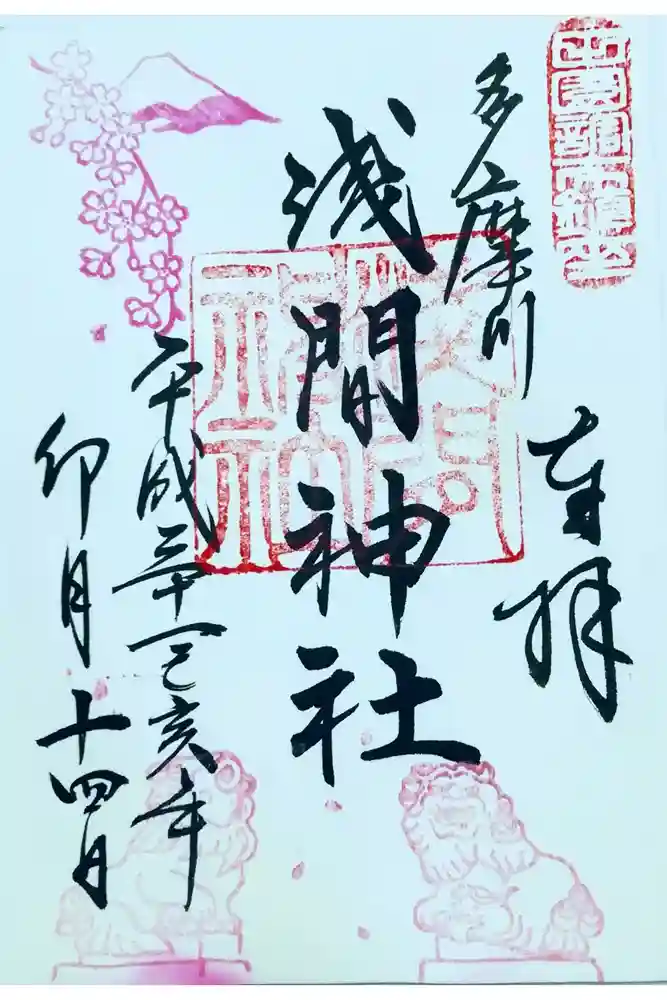 奉拝
多摩川
浅間神社
平成三十一己亥年
卯月十四日
浅間神社